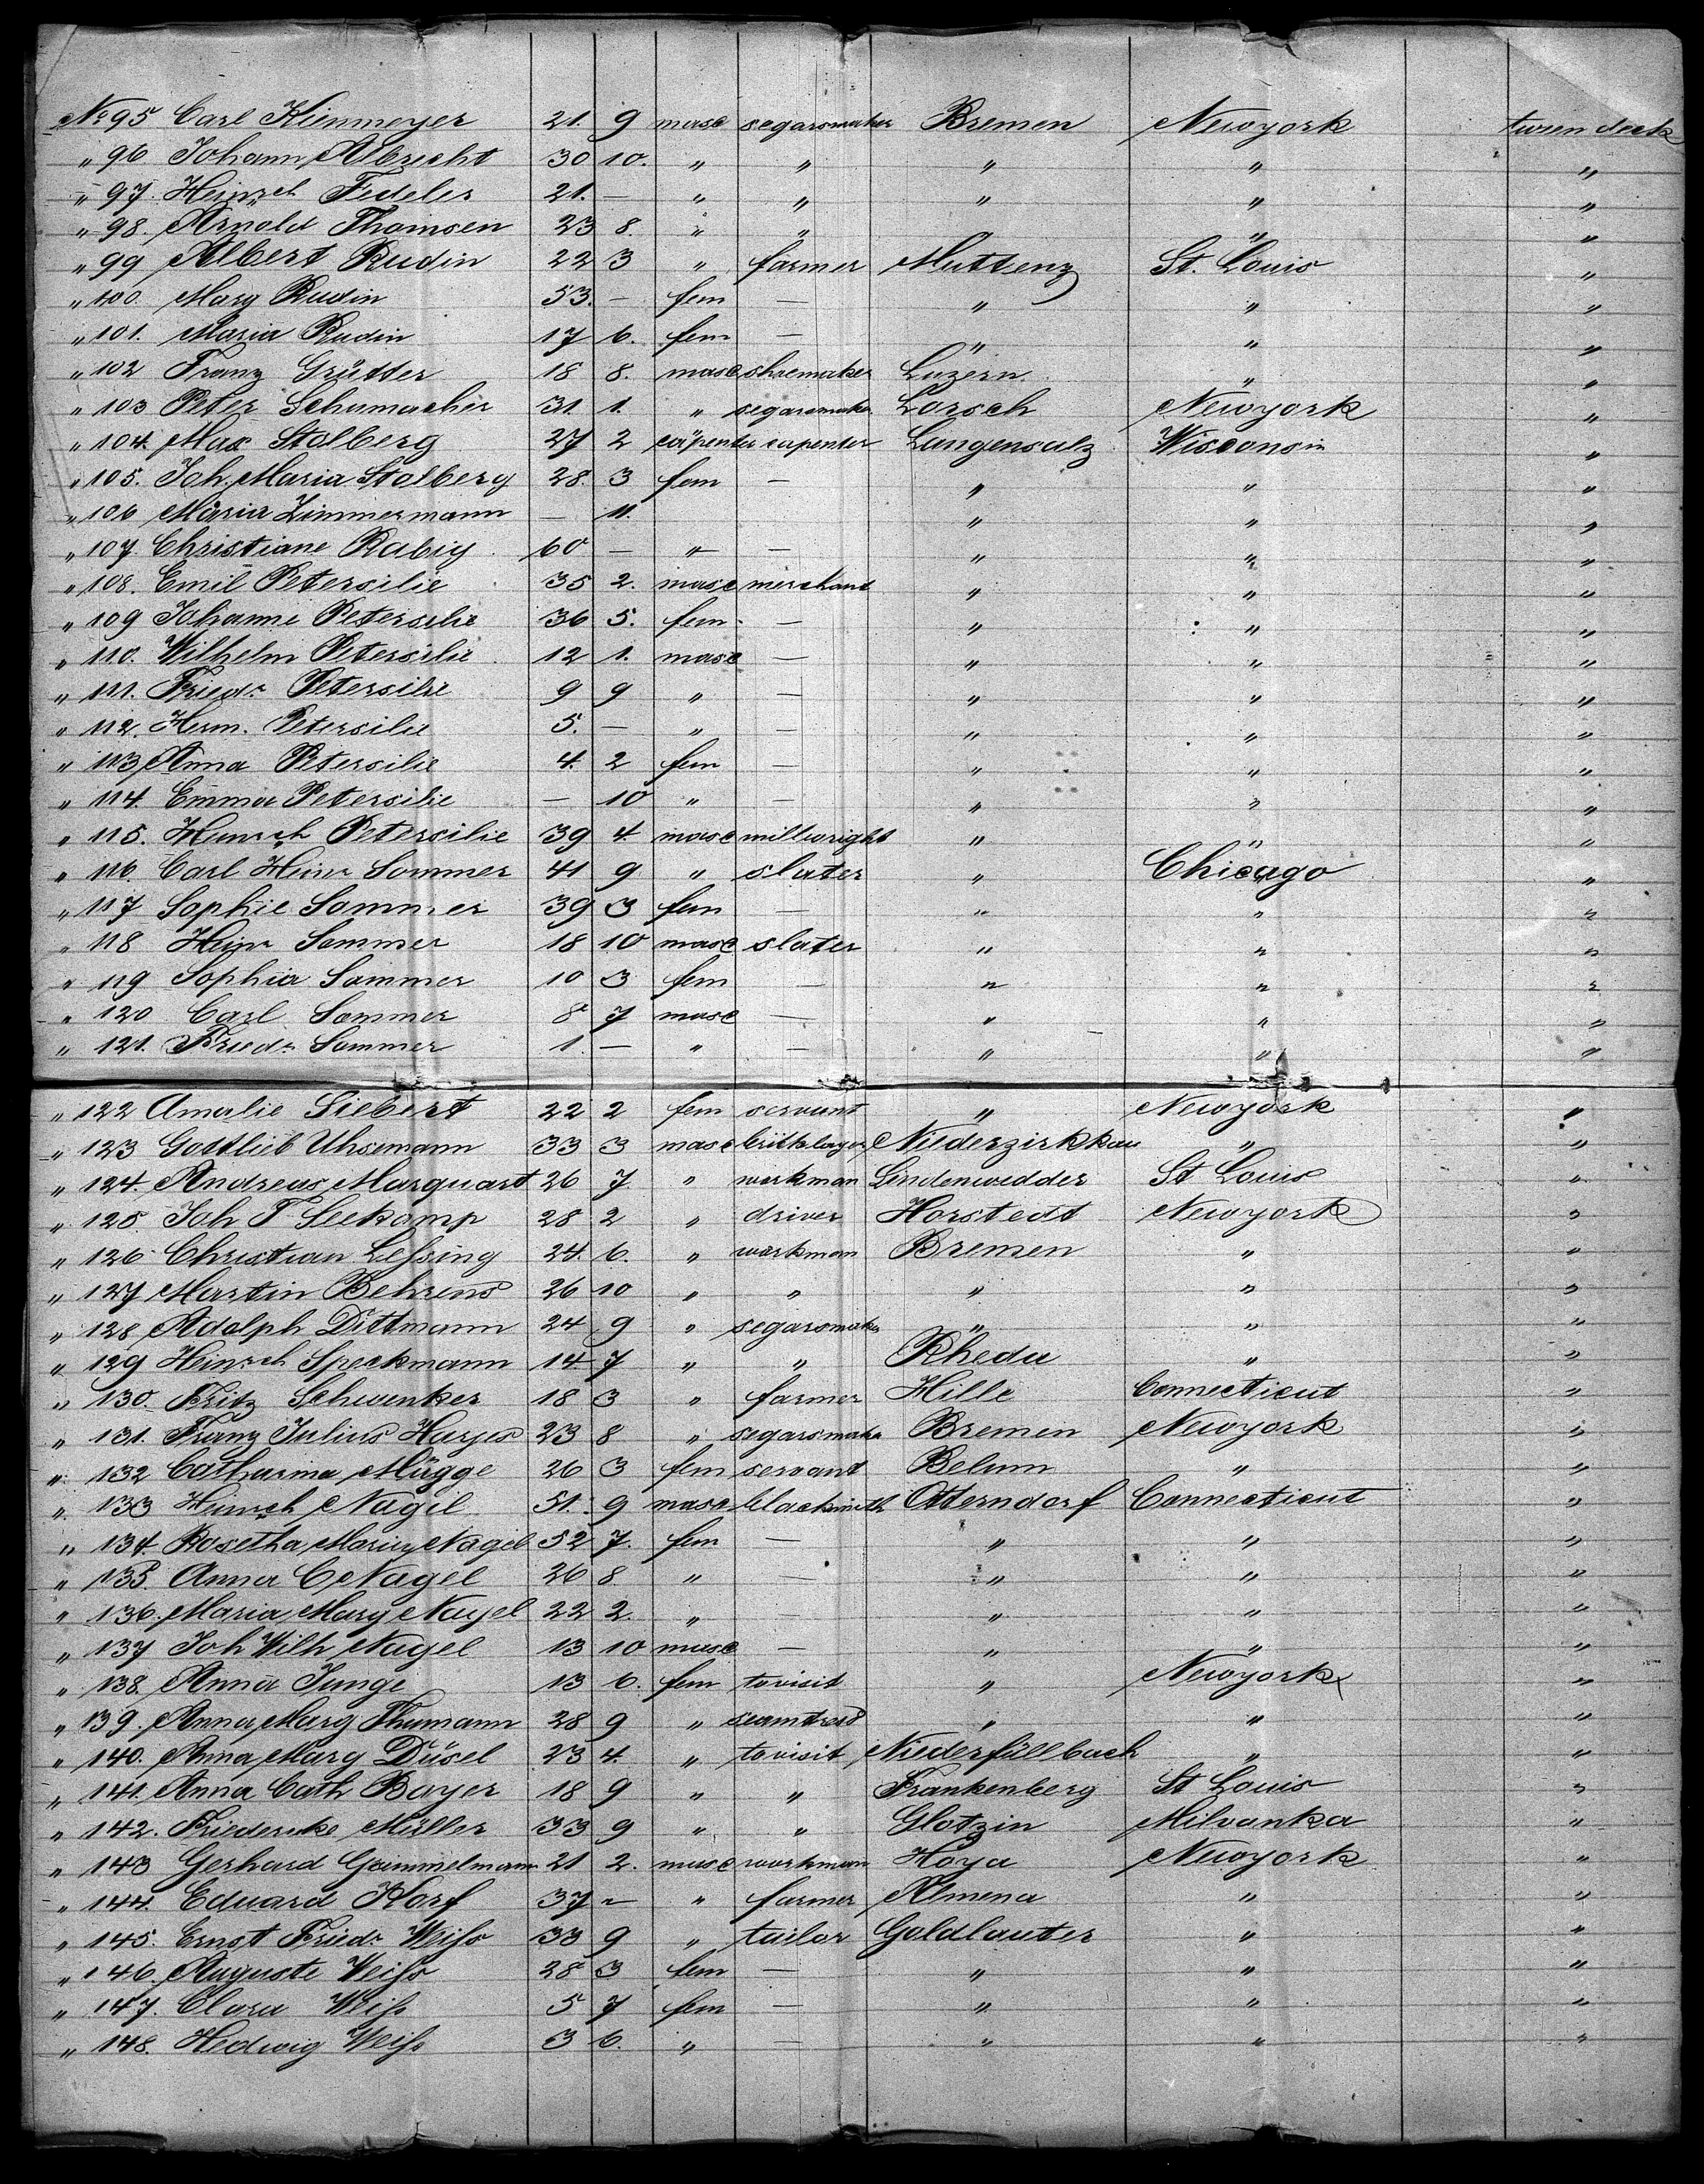 No 95 Carl Kienmeyer 21. 9 masc segarsmaker Bremen Newyork tween deck
" 96 Johann Albrecht 30 10. " " " " "
" 97. Heinrch Fedeler 21. — " " " " "
" 98. Arnold Thomsen 23 8. " " " "
" 99 Albert Rudin 22 3 " farmer Muttenz St. Louis "
" 100. Marg Rudin 53. — fem — " " "
" 101. Maria Rudin 17 6. fem — " " "
" 102 Franz Grütter 18 8. masc shoemaker Luzern " "
" 103 Peter Schumacher 31. 1. " segarsmaker Lorsch Newyork "
" 104. Max Stolberg 27 2 carpenter carpenter Langensalz Wisconsin "
" 105. Joh. Maria Stolberg 28. 3 fem — " " "
" 106 Maria Zimmermann — 11. " " "
" 107. Christiane Rabig 60 — " — " " "
" 108. Emil Petersilie 35 2. masc merchant " " "
" 109 Johanne Petersilie 36 5. fem — " " "
" 110. Wilhelm Petersilie 12 1. masc — " " "
" 111. Friedr Petersilie 9 9 " — " " "
" 112. Herm. Petersilie 5. — " — " " "
" 113 Anna Petersilie 4. 2 fem — " " "
" 114. Emma Petersilie — 10 " — " " "
" 115. Heinrch Petersilie 39 4. masc millwright " " "
" 116. Carl Heinr Sommer 41 9 " slater " Chicago "
" 117 Sophie Sommer 39 3 fem — " " "
" 118 Heinr Sommer 18 10 masc slater " " "
" 119 Sophia Sommer 10 3 fem — " " "
" 120 Carl Sommer 8 7 masc — " " "
" 121. Friedr Sommer 1. — " — " " "
" 122 Amalie Siebert 22 2 fem servant " Newyork "
" 123 Gottlieb Uhsemann 33 3 masc Niederzirkkau " "
" 124. Andreas Marquart 26 7 " workman Lindenwedder St Louis "
" 125. Joh F Seekamp 28 2 " driver Horstedt Newyork "
" 126 Christian Leßing 24. 6. " workman Bremen " "
" 127 Martin Behrens 26 10 " " " " "
" 128 Adolph Dittmann 24 9 " segarsmaker " " "
" 129 Heinrch Speckmann 14 7 " " Rheda " "
" 130. Fritz Schwenker 18 3 " farmer Hille Connecticut "
" 131. Franz Julius Harjes 23 8 " segarsmaker Bremen Newyork "
" 132 Catharina Mügge 26 3 fem servant Belum " "
" 133 Heinrch Nagel 51. 9 masc blacksmith Otterndorf Connecticut "
" 134. Rosetha Maria Nagel 52 7. fem — " " "
" 135. Anna C Nagel 26 8 " — " " "
" 136. Maria Marg Nagel 22 2. " " " "
" 137 Joh Wilh Nagel 13 10 masc — " " "
" 138. Anna Junge 13 6. fem tovisit " Newyork "
" 139. Anna Marg Thumann 28 9 " seamtress " " "
" 140. Anna Marg Düsel 23 4. " tovisit Niederfüllbach " "
" 141. Anna Cath Bayer 18 9 " " Frankenberg St Louis "
" 142. Friedericke Müller 33 9 " " Glotzin Milvanka "
" 143 Gerhard Grimmelmann 21 2. masc workman Hoya Newyork "
" 144. Eduard Korf 37 — " farmer Almena " "
" 145. Ernst Friedr Weiß 33 9 " tailor Goldlauter " "
" 146. Auguste Weiß 28 3 fem — " " "
" 147. Clara Weiß 5 7 fem — " " "
" 148. Hedwig Weiß 3 6. " — " " "